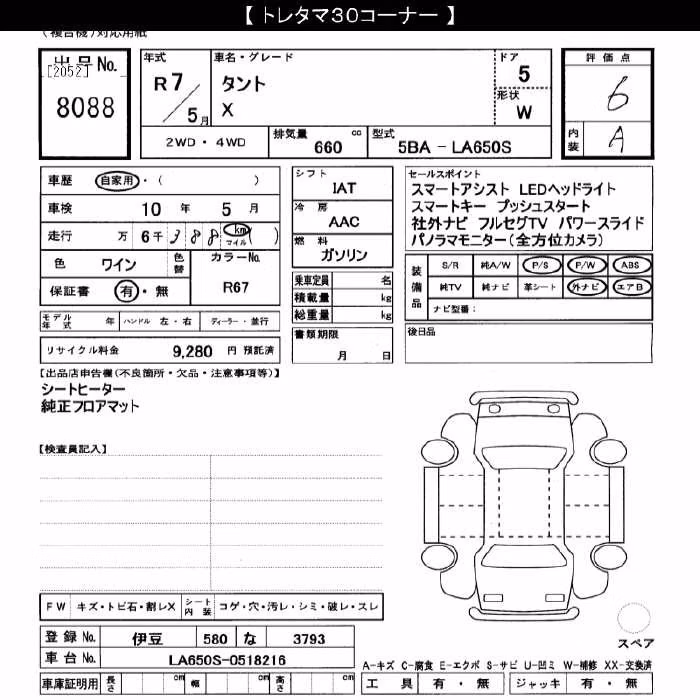 【 トレタマ30コーナー 】
(複合機)対応用紙
出品No.
[2052]
8088
年式
R7/5月
車名・グレード
タント
X
ドア
5
形状
W
2WD・4WD
排気量 660 cc
型式 5BA - LA650S
評価点
6
内装 A
車歴 自家用・( )
車検 10年 5月
走行 万 6千 388 km マイル ( )
色 ワイン 色替
カラーNo. R67
保証書 有・無
モデル年式 年 ハンドル 左・右 ディーラー・並行
リサイクル料金 9,280 円 預託済
シフト
IAT
冷房
AAC
燃料
ガソリン
乗車定員 名
積載量 kg
総重量 kg
書類期限
月 日
セールスポイント
スマートアシスト LEDヘッドライト
スマートキー プッシュスタート
社外ナビ フルセグTV パワースライド
パノラマモニター(全方位カメラ)
装備品
S/R 純A/W P/S P/W ABS
純TV 純ナビ 革シート 外ナビ エアB
ナビ型番:
後日品
【出品店申告欄(不良箇所・欠品・注意事項等)】
シートヒーター
純正フロアマット
【検査員記入】
FW キズ・トビ石・割レX シート内装 コゲ・穴・汚レ・シミ・破レ・スレ
登録No. 伊豆 580 な 3793
車台No. LA650S-0518216
車庫証明用 長さ cm 幅 cm 高さ cm
スペア
A-キズ C-腐食 E-エクボ S-サビ U-凹ミ W-補修 XX-交換済
工具 有・無 ジャッキ 有・無